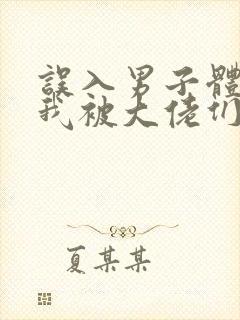 誤入男子體
我被大佬们
夏某某